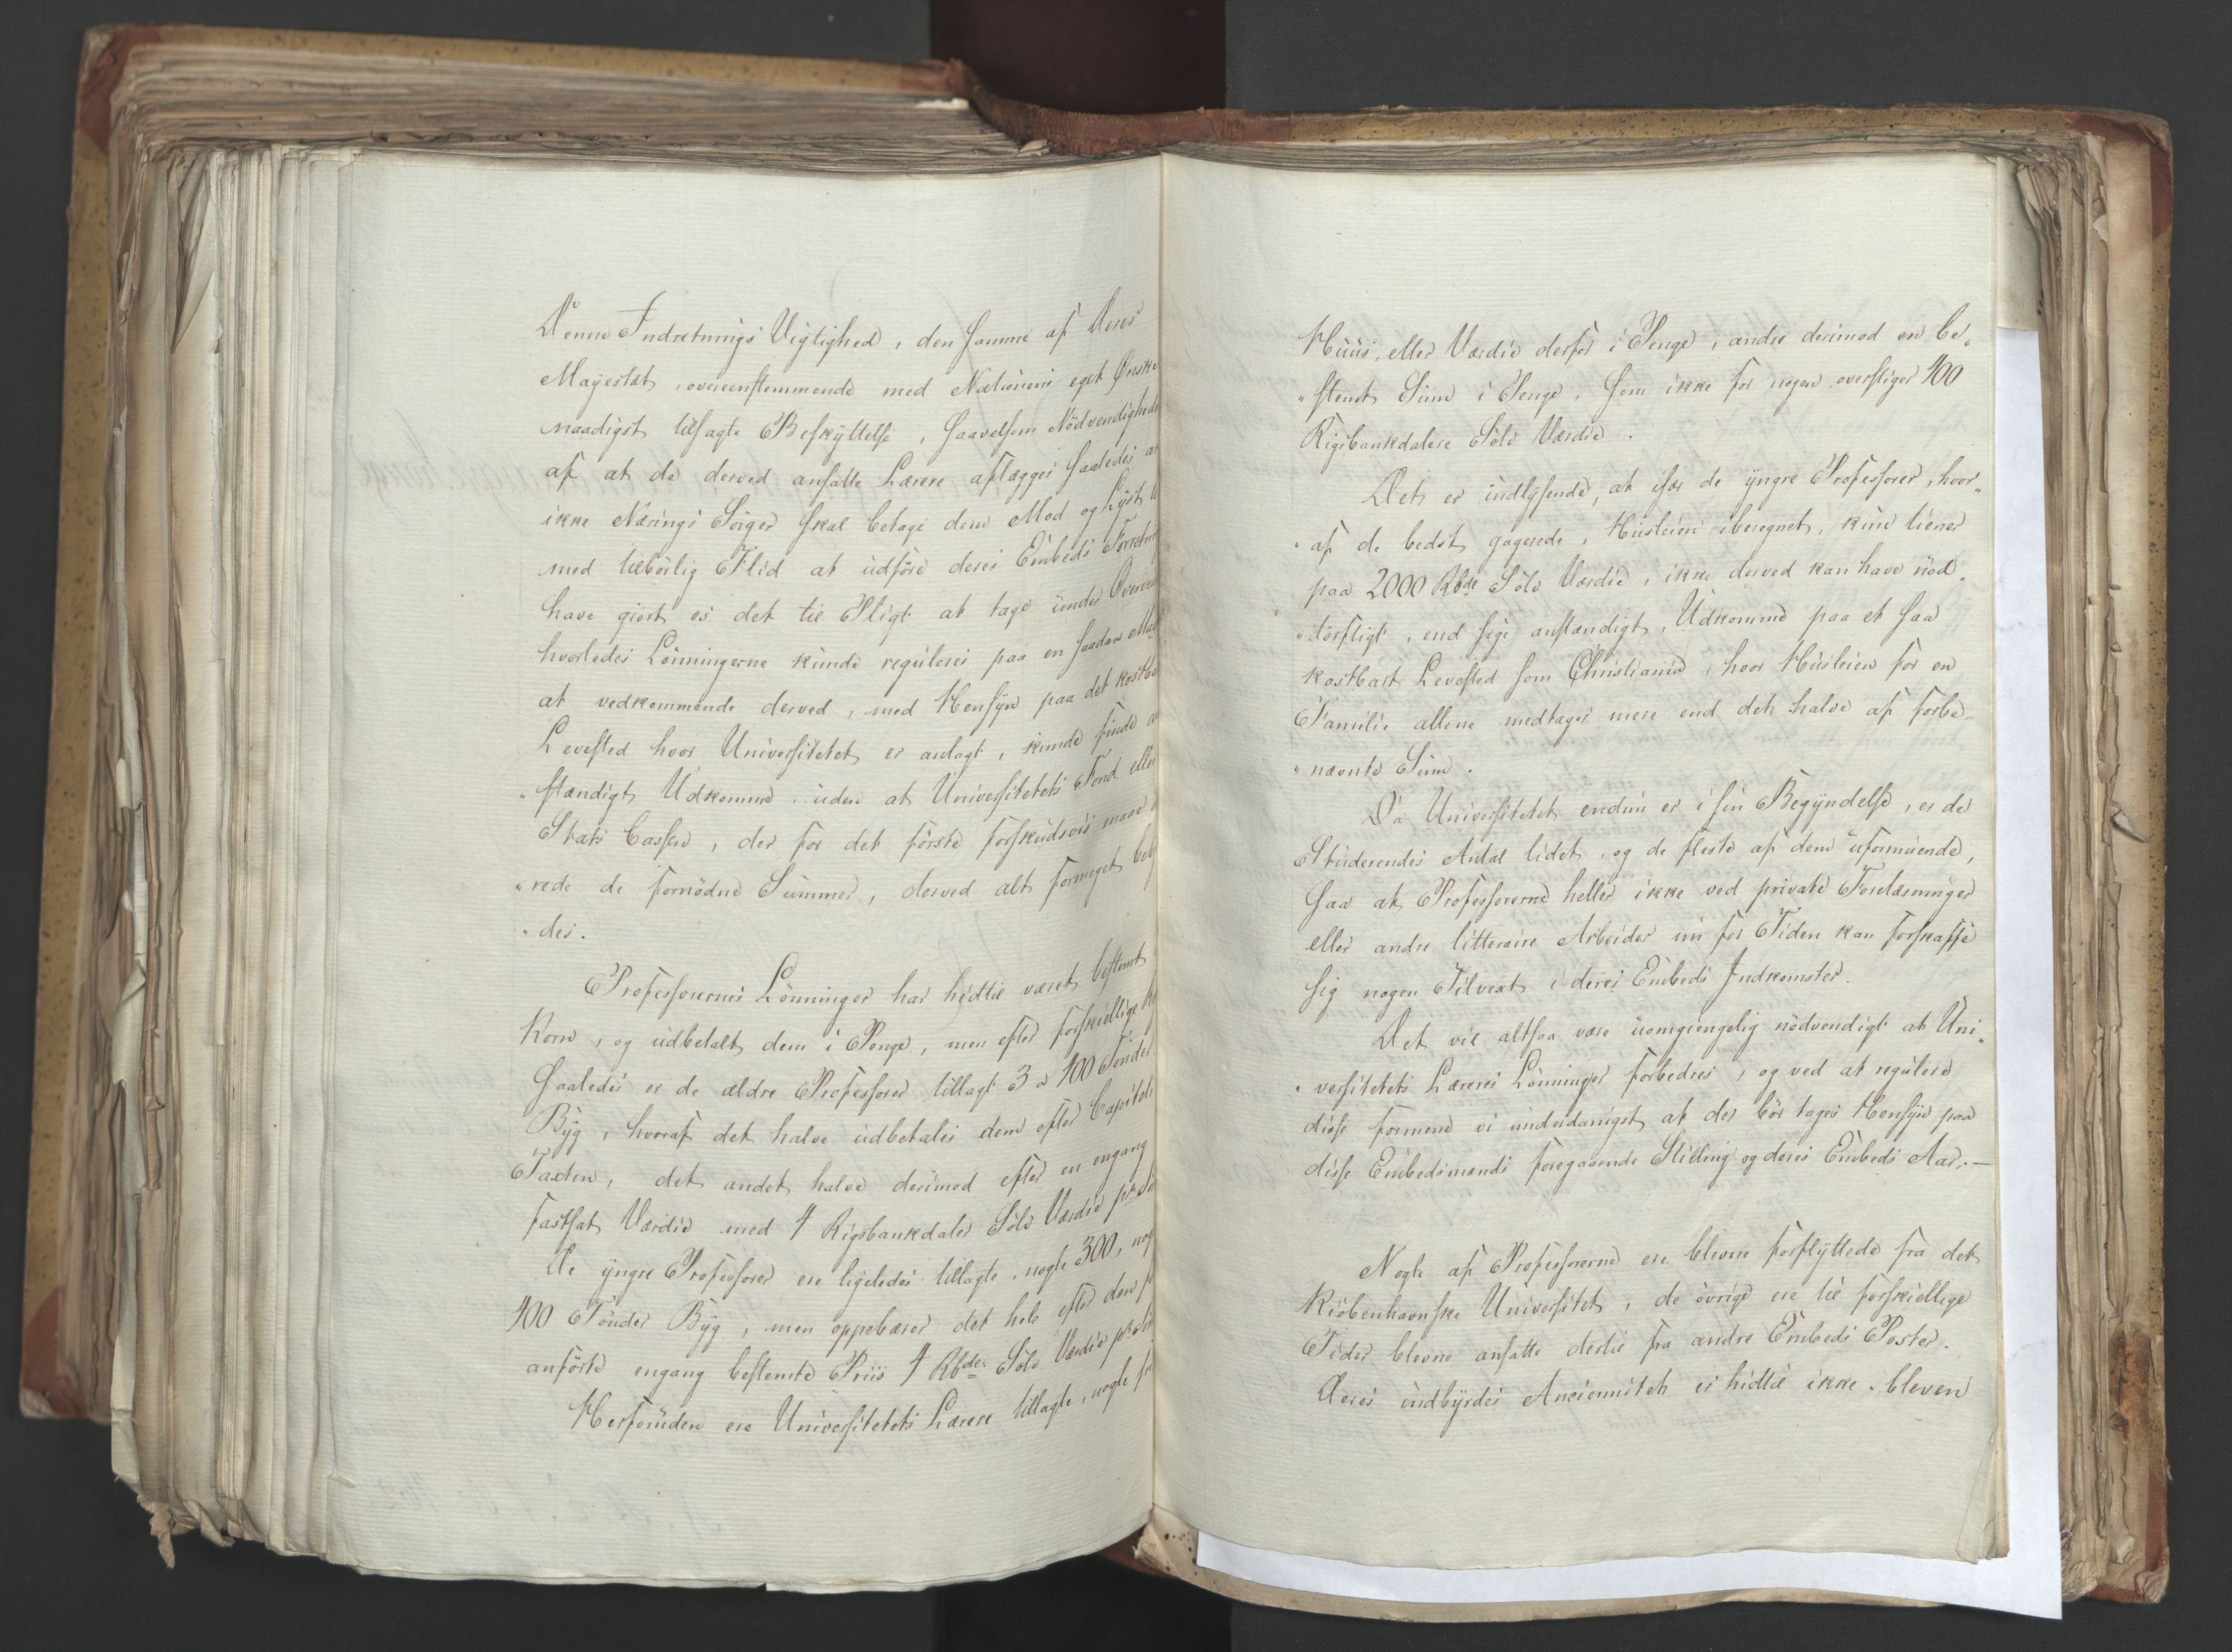 Denne Indretnings Vigtighed, den samme af Deres
Mayestæt, overeenstemmende med Nationens eget Ønske
naadigst tilsagte Beskyttelse, saavelsom Nödvendighede
af at de derved ansatte Lærere aflægges saaledes at
ikke Nærings Sorger skal betage dem Mod og Lyst ti
med tilbörlig Flid at udföre deres Embeds Forretn
have giort os det til Pligt at tage under Overvei
hvorledes Lönningerne kunde reguleres paa en saadan Maa
at vedkommende derved, med Hensyn paa det kostba
Levested hvor Universitetet er anlagt, kunde finde an
„stændigt Udkomme, uden at Universitetets Fond eller
Stats Cassen, der for det förste forskudsviis maae
„rede de fornödne Summer, derved alt formeget beby
„des.
Professorernes Lönninger har hidtil været bestemt
Korn, og udbetalt dem i Penge, men efter forskiellige
Saaledes er de ældre Professorer tillagt 3 a 400 Tönder
Byg, hvoraf det halve udbetales dem efter Capitels
Taxten, det andet halve derimod efter en engang
fastsat Værdie med 4 Rigsbankdaler Sölv Værdie pr
De yngre Professorer ere ligeledes tillagte, nogle 300, nog
400 Tönder Byg, men oppebærer det hele efter den
anförte engang bestemte Priis 4 Rbdr Sölv Værdie pr
Herforuden ere Universitetets Lærere tillagte, nogle fr
Huus, eller Værdie derfor i Penge, andre derimod en be„
„stemt Sum i Penge, som ikke for nogen overstiger 400
Rigsbankdalere Sölv Værdie.
Det er indlysende, at især de yngre Professorer, hvor„
„af de bedst gagerede, Huusleien iberegnet, kun tiener
paa 2000 Rbdr Sölv Værdie, ikke derved kan have nöd„
„törftigt, end sige anstændigt, Udkomme paa et saa
kostbart Levested som Christiania, hvor Huusleien for en
Familie allene medtager mere end det halve af forbe„
„nævnte Sum.
Da Universitetet endnu er i sin Begyndelse, er de
Studerendes Antal lidet, og de fleste af dem uformuende,
saa at Professorerne heller ikke ved private Forelæsninger
eller andre litteraire Arbeider nu for Tiden kan forskaffe
sig nogen Tilvext i deres Embeds Indkomster.
Det vil altsaa være uomgiengelig nödvendigt at Uni„
„versitetets Læreres Lönninger forbedres, og ved at regulere
disse formene vi underdanigst at der bör tages Hensyn paa
disse Embedsmænds foregaaende Stilling og deres Embeds Aar.—
Nogle af Professorerne ere blevne forflyttede fra det
Kiöbenhavnske Universitet, de övrige ere til forskiellige
Tider blevne ansatte dertil fra andre Embeds Poster.
Deres indbyrdes Anciennitet er hidtil ikke bleven